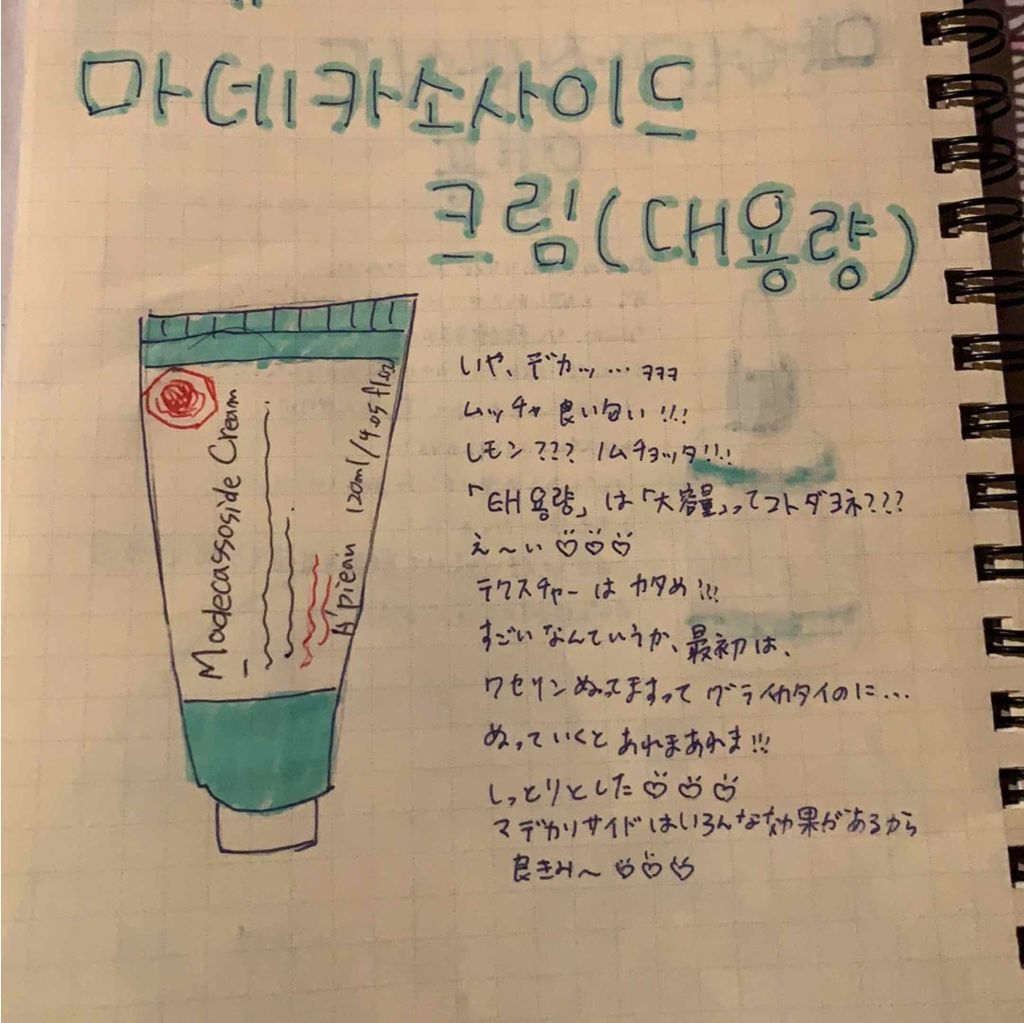 마데카소사이드
크림(대용량)
いや、デカッ... ヨヨヨ
ムッチャ良い匂い!!!
レモン??? ノムチョッタ!!!
「대용량」は「大容量」ってコトダヨネ???
え〜い♡♡♡
テクスチャーはカタめ!!!
すごいなんていうか、最初は、
ワセリンぬってますってグライカタイのに...
ぬっていくとあれまあれま!!!
しっとりとした♡♡♡
マデカソサイドはいろんな効果があるから
良きみ〜♡♡♡
Madecassoside Cream
A'pieau 120ml/4.05 fl oz